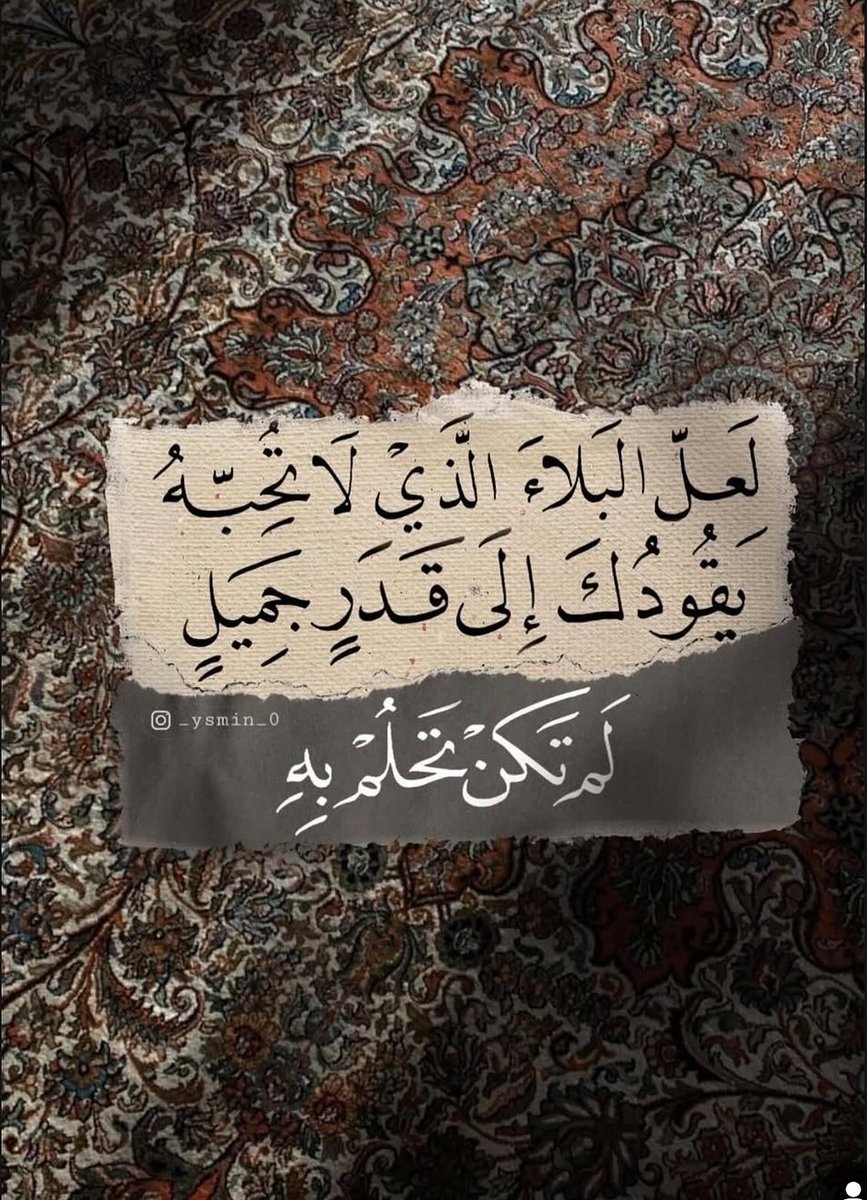 لَعَلّ البَلاءَ الَّذيْ لَا تُحِبّهُ
يَقُودُكَ إِلَى قَدَرٍ جَمِيلٍ
_ysmin_0
لَم تَكنْ تَحلُمْ بِهِ